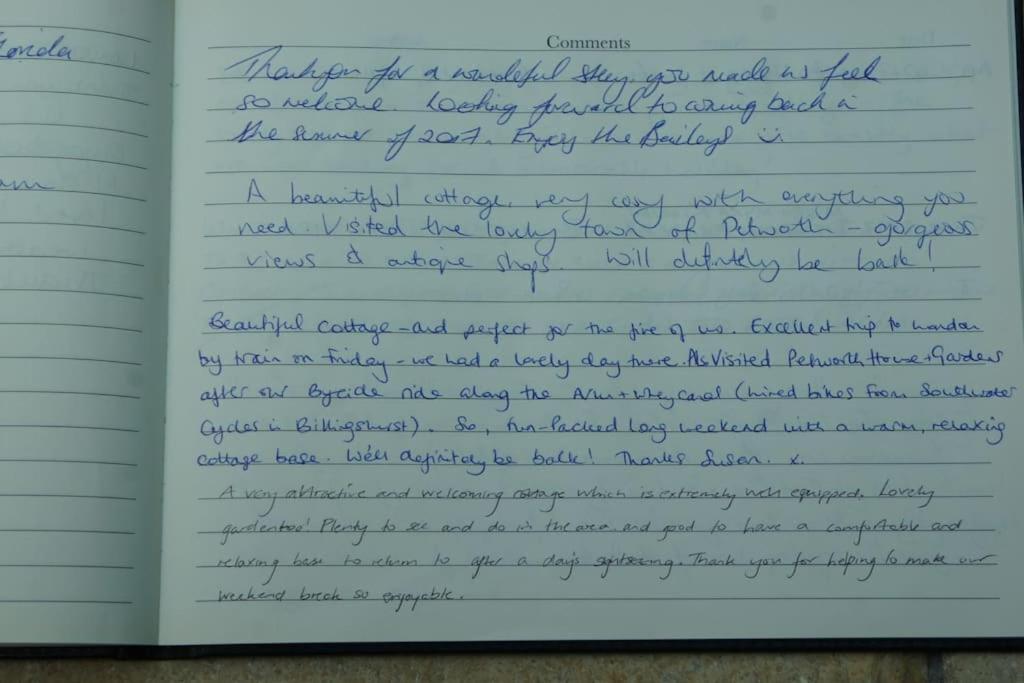 Comments
Thankyou for a wonderful stay, you made us feel
so welcome. Looking forward to coming back in
the summer of 2017. Enjoy the Baileys
A beautiful cottage, very cosy with everything you
need. Visited the lovely town of Petworth - gorgeous
views & antique shops. Will definitely be back!
Beautiful cottage - and perfect for the five of us. Excellent trip to London
by train on Friday - we had a lovely day there. Visited Petworth House + Gardens
after our Bycicle ride along the Arun + Wey canal (hired bikes from Southwater
Cycles in Billingshurst). So, fun-packed long weekend with a warm, relaxing
cottage base. We'll definitely be back! Thanks Susan. x.
A very attractive and welcoming cottage which is extremely well equipped. Lovely
garden too! Plenty to see and do in the area and good to have a comfortable and
relaxing base to return to after a day's sightseeing. Thank you for helping to make our
weekend break so enjoyable.